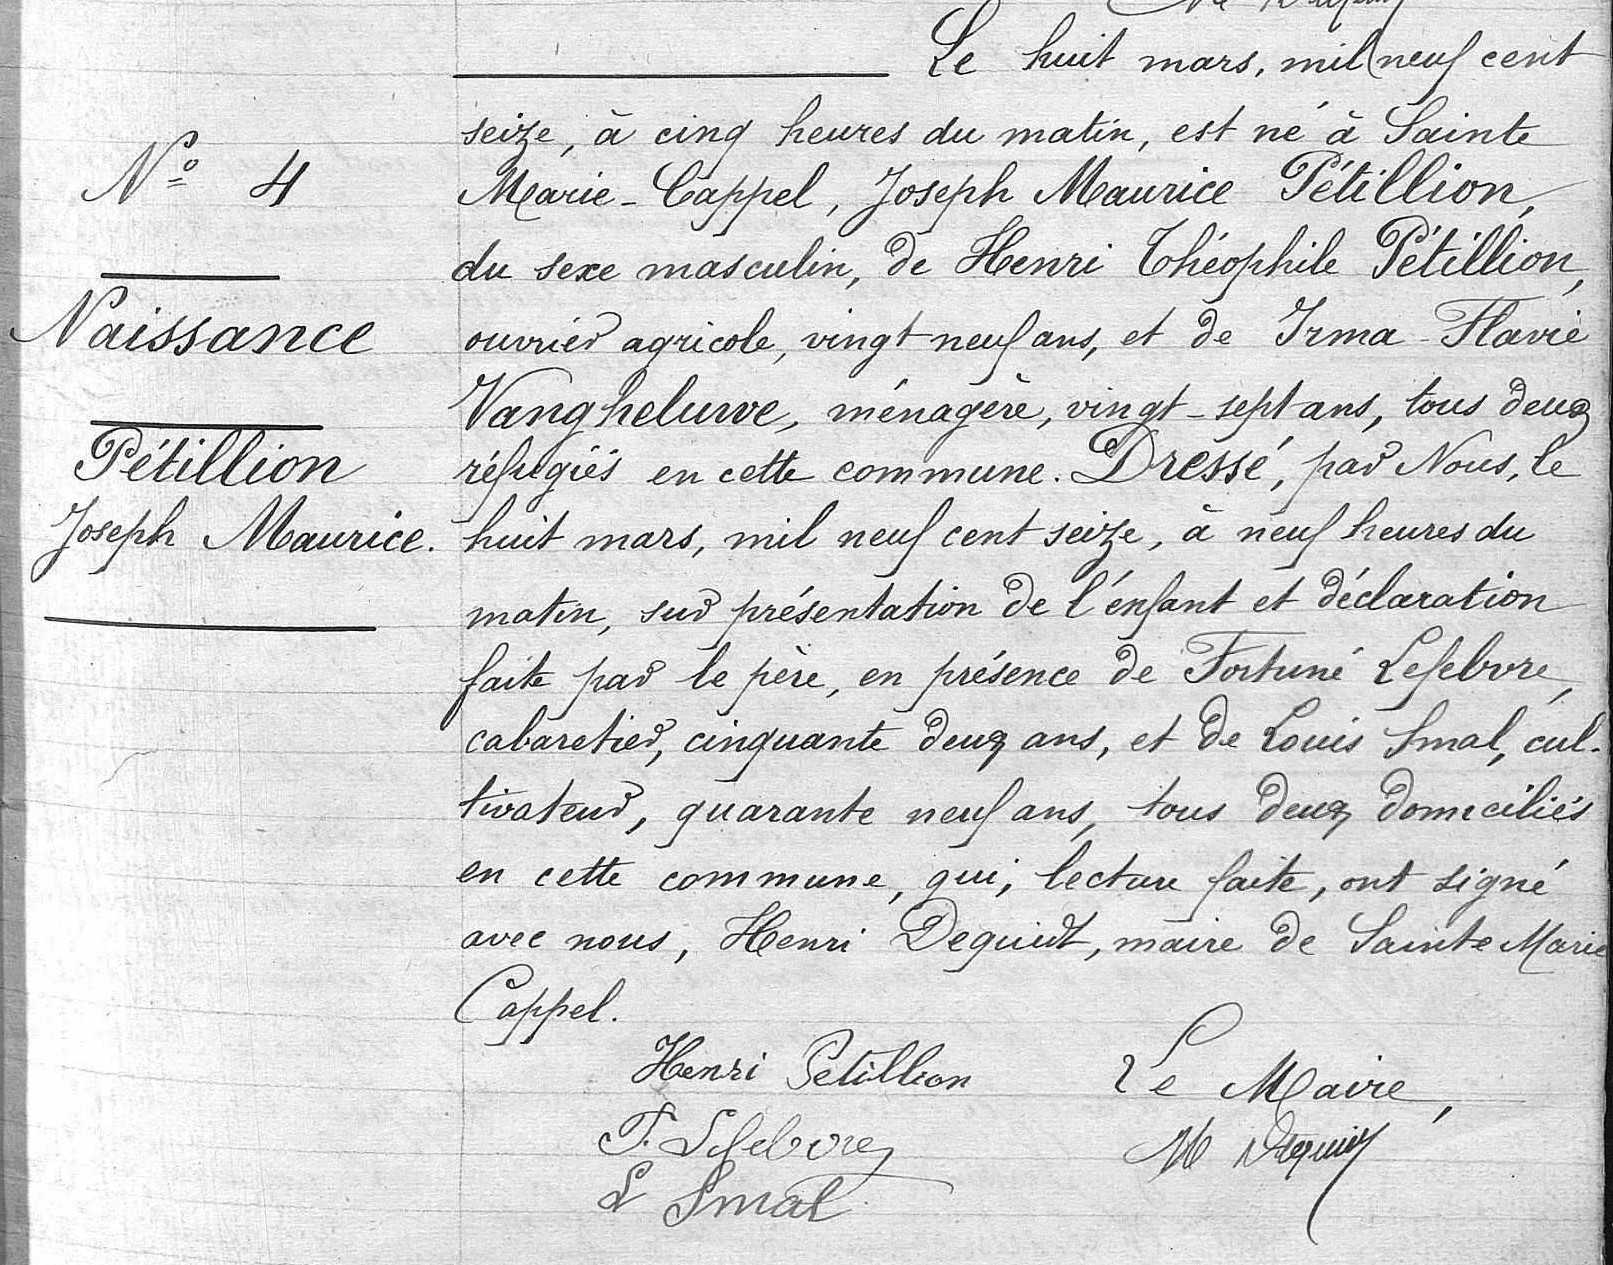 Le huit mars, mil neuf cent
seize, à cinq heures du matin, est né à Sainte
Marie-Cappel, Joseph Maurice Pétillion,
du sexe masculin, de Henri Théophile Pétillion,
ouvrier agricole, vingt neuf ans, et de Irma-Flavie
Vangheluwe, ménagère, vingt-sept ans, tous deux
réfugiés en cette commune. Dressé, par Nous, le
huit mars, mil neuf cent seize, à neuf heures du
matin, sur présentation de l'enfant et déclaration
faite par le père, en présence de Fortuné Lefebvre,
cabaretier, cinquante deux ans, et de Louis Smal, cul-
tivateur, quarante neuf ans, tous deux domiciliés
en cette commune, qui, lecture faite, ont signé
avec nous, Henri Dequidt, maire de Sainte Marie
Cappel.
No 4
Naissance
Pétillion
Joseph Maurice.
Henri Petillion
F. Lefebvre
L Smal
Le Maire,
H Dequidt